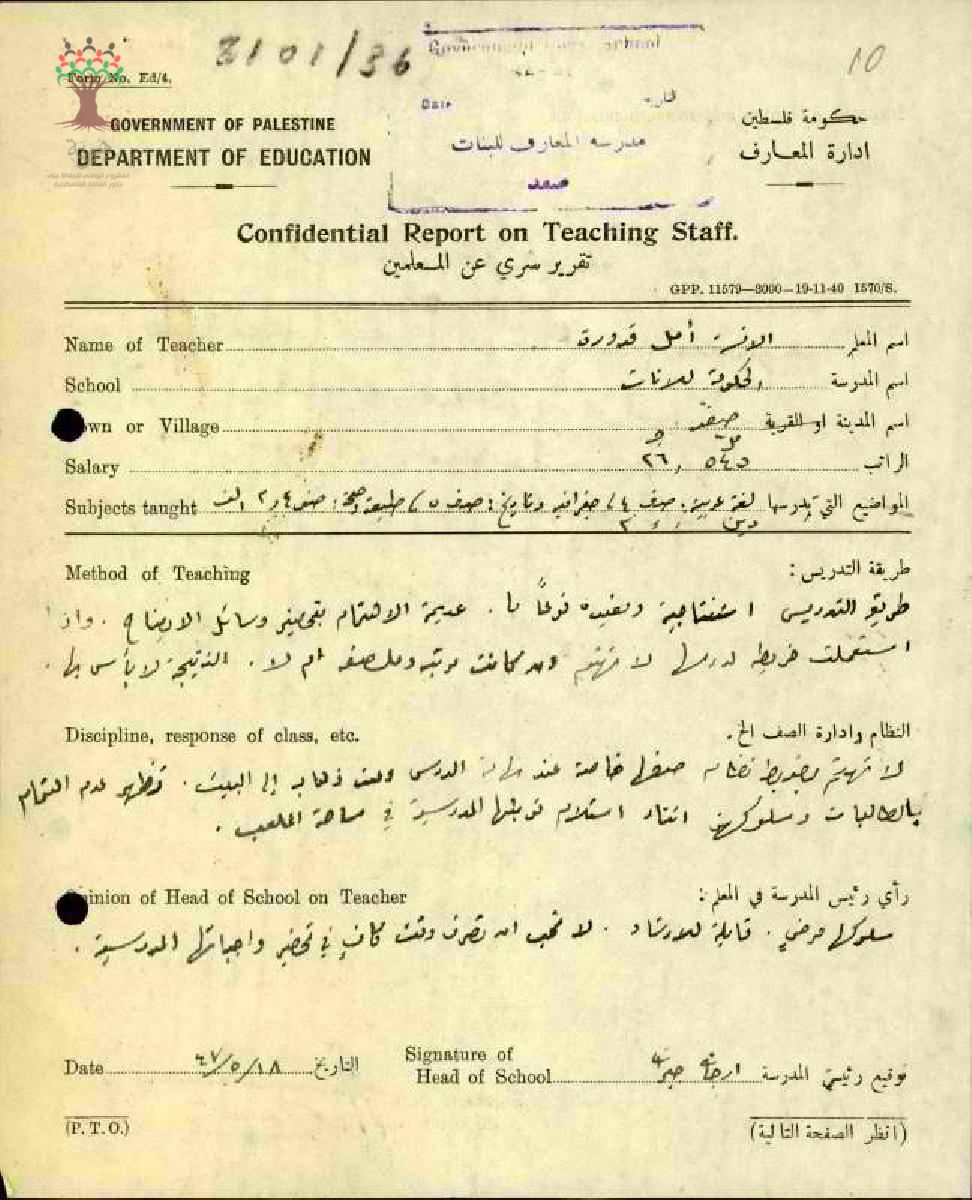 3101/36
10
Government Girls School
Form No. Ed/4.
Date
تاريخ
GOVERNMENT OF PALESTINE
حكومة فلسطين
مدرسة المعارف للبنات
DEPARTMENT OF EDUCATION
ادارة المعارف
صفد
Confidential Report on Teaching Staff.
تقرير سري عن المعلمين
GPP. 11579—3000—19-11-40 1570/S.
Name of Teacher الانسة أمل قدورة اسم المعلم
School الحكومة للبنات اسم المدرسة
Town or Village صفد اسم المدينة او القرية
Salary ٥٤٥ , ٢٦ الراتب
Subjects taught المواضيع التي يدرسها لغة عربية: صف ٤ / جغرافيه وتاريخ: صف ٥ / طبيعة وصحة: صف ٤ و ٢
ودين
Method of Teaching طريقة التدريس:
طريقة التدريس استنتاجية ومفيده نوعًا ما. عديمة الاهتمام بتحضير وسائل الايضاح. واذا
استعملت خريطة لدرسها لا تهتم ان كانت مرتبه ام لا. النتيجة لا بأس بها.
Discipline, response of class, etc. النظام وادارة الصف الخ.
لا تهتم بضبط نظام صفها خاصة عند نهاية الدرس وقت ذهاب إلى البيت. تظهر عدم اهتمام
بالطالبات وسلوكهن اثناء استلام نوبتها المدرسية في ساحة الملعب.
Opinion of Head of School on Teacher رأي رئيس المدرسة في المعلم:
سلوكها مرضي. قابلة للارشاد. لا تحب ان تصرف وقت كاف في تحضير واجباتها المدرسية.
Date ١٨/٥/٤٧ التاريخ
Signature of
Head of School توقيع رئيس المدرسة
(P. T. O.) (انظر الصفحة التالية)